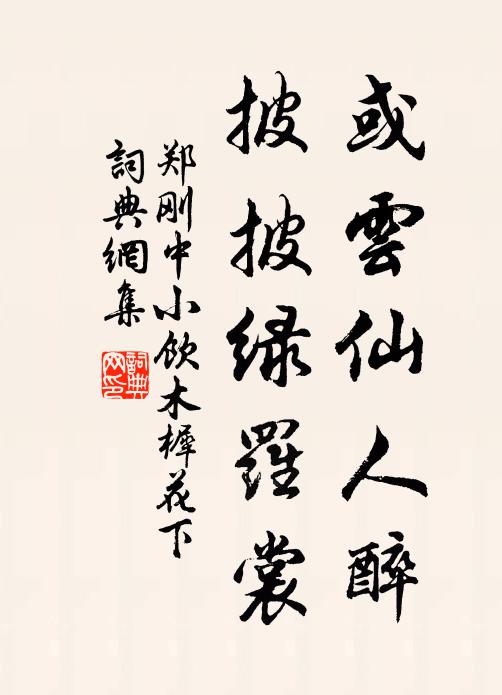 或雲仙人醉
披披绿羅裳
郑刚中小饮木樨花下
詞典網集
詞典
网印